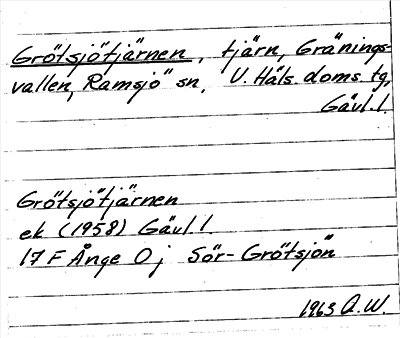 Grötsjötjärnen, tjärn, Gränings-
vallen, Ramsjö sn, V. Häls. doms. tg,
Gävl. l.
Grötsjötjärnen
ek (1958) Gävl. l.
17 F Ånge 0 j Sör-Grötsjön
1963 A.W.